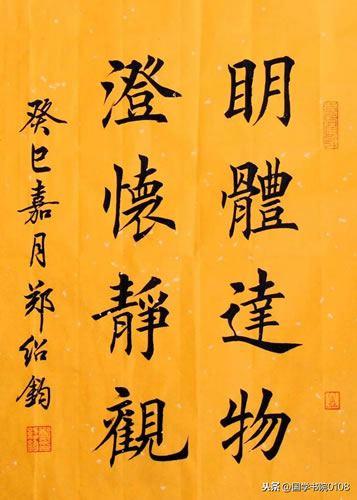 明體達物
澄懷靜觀
癸巳嘉月郑绍鈞
头条 @国学书院0108